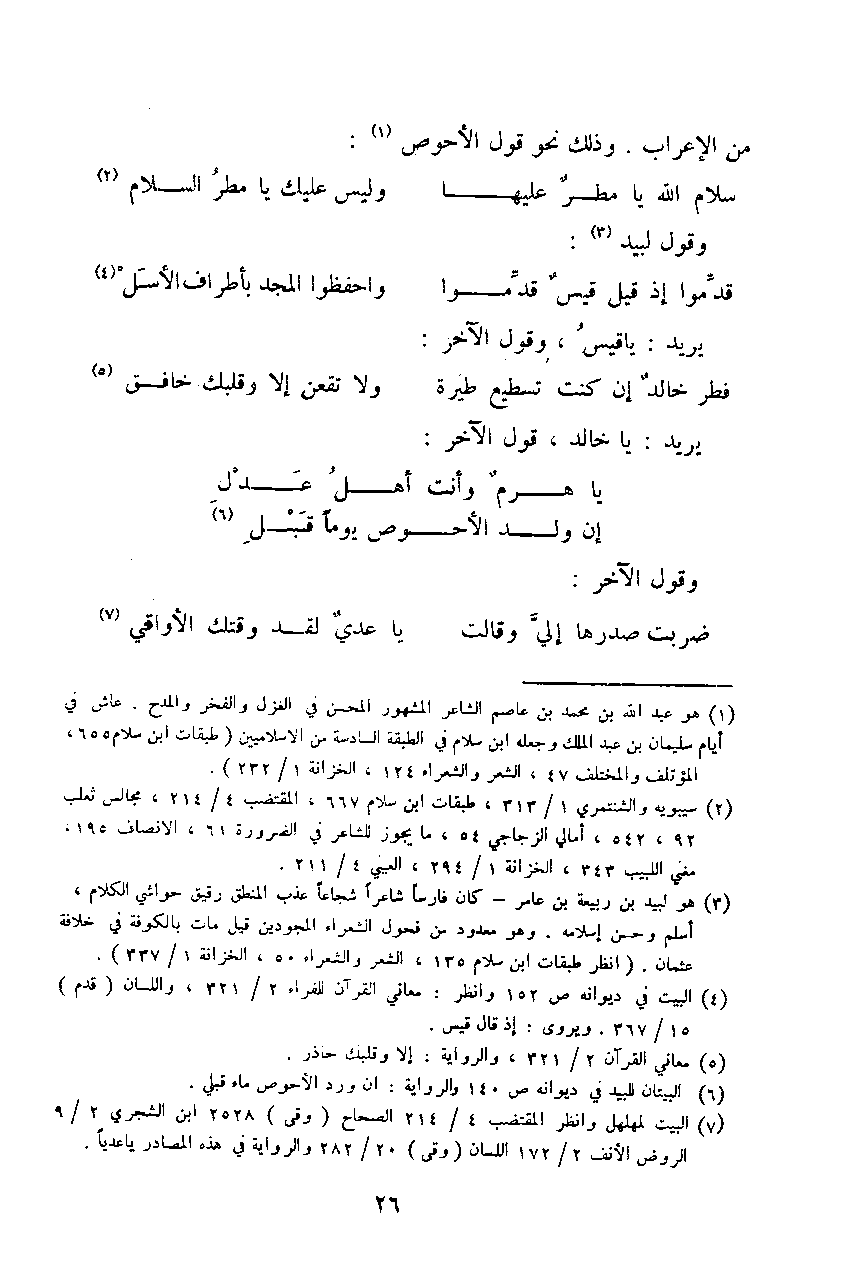 من الإعراب . وذلك نحو قول الأحوص (١) :
سلام الله يا مطــرٌ عليهـــــا وليس عليك يا مطرُ الســلام (٢)
وقول لبيد (٣) :
قدَّموا إذ قيل قيسٌ قدَّمـــوا واحفظوا المجد بأطراف الأسَلْ (٤)
يريد : ياقيسُ ، وقول الآخر :
فطر خالدٌ إن كنت تسطيع طيَرة ولا تقعن إلا وقلبك خافــق (٥)
يريد : يا خالد ، قول الآخر :
يا هـــرمٌ وأنت أهـــلُ عَـــدْلِ
إن ولـــد الأحـــوص يوماً قَبْـــلِ (٦)
وقول الآخر :
ضربت صدرها إليَّ وقالت يا عديٌ لقــد وقتك الأواقي (٧)
(١) هو عبد الله بن محمد بن عاصم الشاعر المشهور المحسن في الغزل والفخر والمدح . عاش في
أيام سليمان بن عبد الملك وجعله ابن سلام في الطبقة السادسة من الاسلاميين ( طبقات ابن سلام ٦٥٥ ،
المؤتلف والمختلف ٤٧ ، الشعر والشعراء ١٢٤ ، الخزانة ١ / ٢٣٢ ) .
(٢) سيبويه والشنتمري ١ / ٣١٣ ، طبقات ابن سلام ٦٦٧ ، المقتضب ٤ / ٢١٤ ، مجالس ثعلب
٩٢ ، ٥٤٢ ، أمالي الزجاجي ٥٤ ، ما يجوز للشاعر في الضرورة ٦١ ، الانصاف ١٩٥ ،
مغني اللبيب ٣٤٣ ، الخزانة ١ / ٢٩٤ ، العيني ٤ / ٢١١ .
(٣) هو لبيد بن ربيعة بن عامر – كان فارساً شاعراً شجاعاً عذب المنطق رقيق حواشي الكلام ،
أسلم وحسن إسلامه . وهو معدود من فحول الشعراء المجودين قيل مات بالكوفة في خلافة
عثمان . ( انظر طبقات ابن سلام ١٣٥ ، الشعر والشعراء ٥٠ ، الخزانة ١ / ٣٣٧ ) .
(٤) البيت في ديوانه ص ١٥٢ وانظر : معاني القرآن للفراء ٢ / ٣٢١ ، واللسان ( قدم )
١٥ / ٣٦٧ . ويروى : إذ قال قيس .
(٥) معاني القرآن ٢ / ٣٢١ ، والرواية : إلا وقلبك حاذر .
(٦) البيتان للبيد في ديوانه ص ١٤٠ والرواية : ان ورد الأحوص ماء قبلي .
(٧) البيت لمهلهل وانظر المقتضب ٤ / ٢١٤ الصحاح ( وقى ) ٢٥٢٨ ابن الشجري ٢ / ٩
الروض الأنف ٢ / ١٧٢ اللسان ( وقى ) ٢٠ / ٢٨٢ والرواية في هذه المصادر ياعدياً .
٢٦